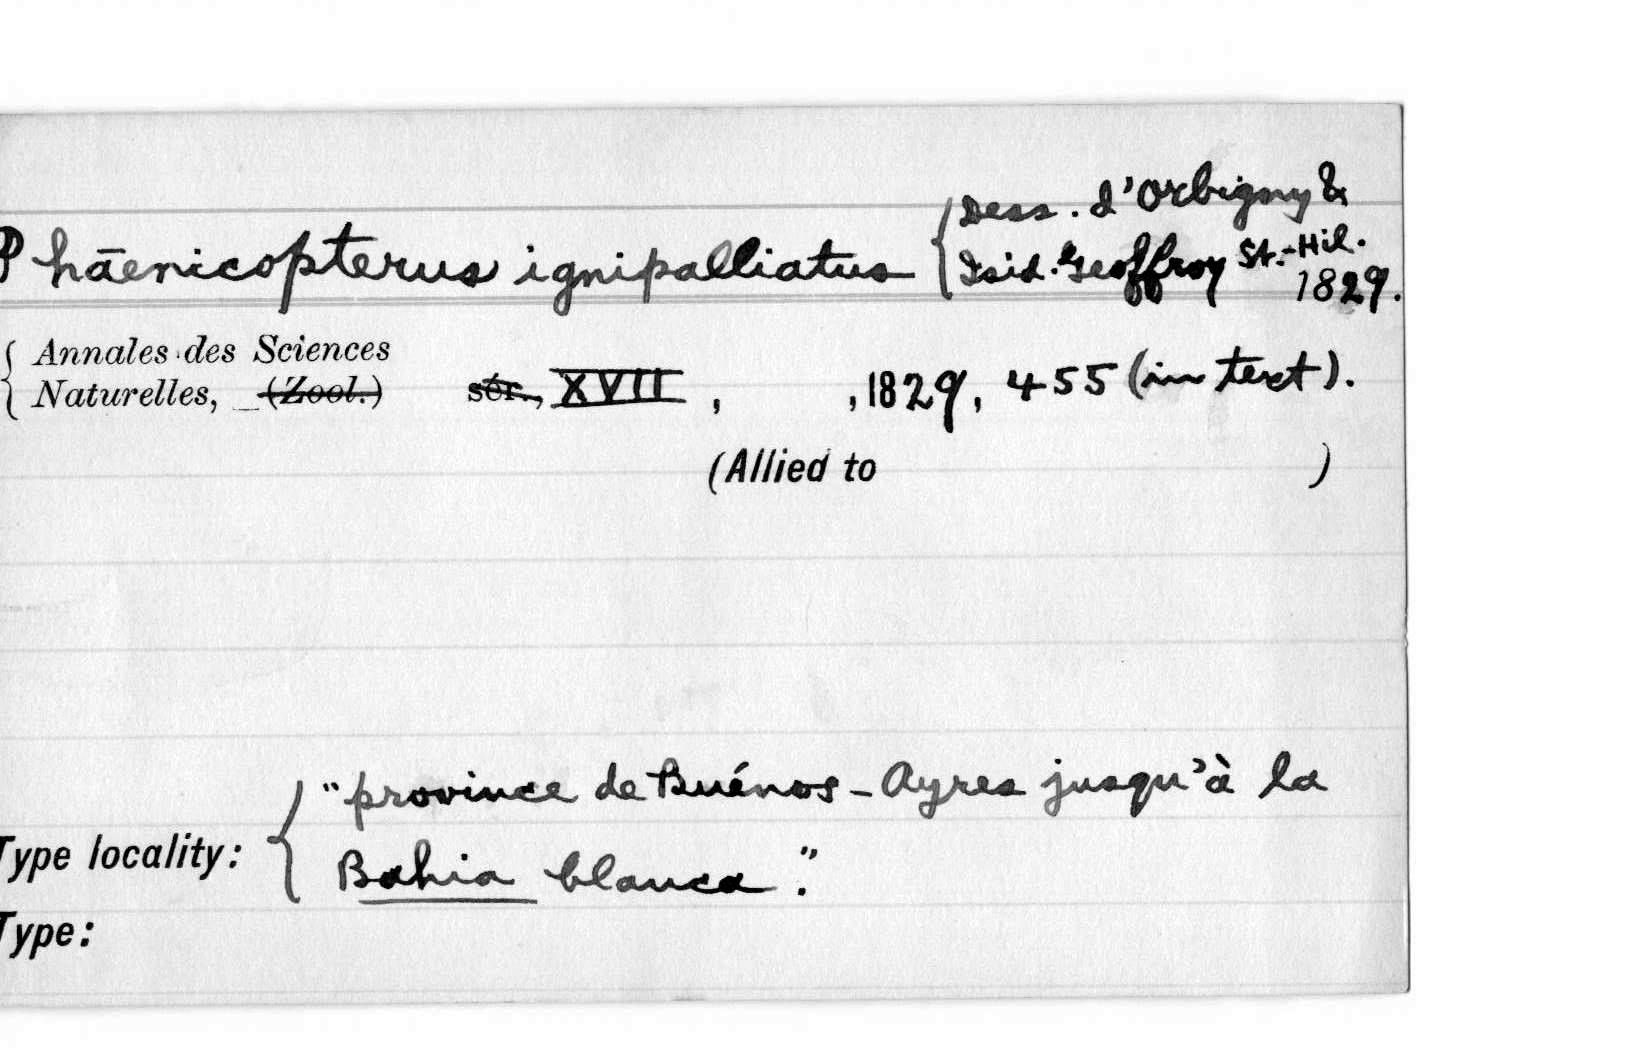 Phāenicopterus ignipalliatus { Dess. d'Orbigny &
Isid. Geoffroy St.-Hil.
1829.
{ Annales des Sciences
Naturelles, (Zool.) sér., XVII , , 1829, 455 (in text).
(Allied to )
Type locality: { "province de Buénos-Ayres jusqu'à la
Bahia blanca."
Type: